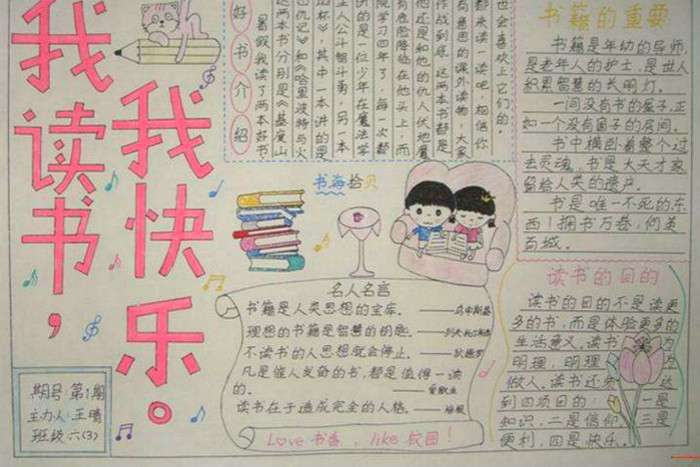 我读书，
我快乐。
好书介绍
暑假我读了两本好书
这两本书分别是《基度山
仇记》和《哈里波特与火
杯》，其中一本讲的是
主人公斗智斗勇，另一本
讲的是一位少年在魔法学
院学习四年了，每一次都
有危险降临在他头上，而
他还是和他的仇人伏地魔
作战到底。这两本书都是
有意思的课外读物，大家
都来读一读吧，相信你
也会喜欢上它们的。
书籍的重要
书籍是年幼的导师，
是老年人的护士，是世人
积累智慧的长明灯。
一间没有书的屋子正
如一个没有窗子的房间。
书中横卧着整个过
去灵魂，书是大天才家
留给人类的遗产。
书是唯一不死的东
西！拥书万卷，何英
百城。
书海拾贝
名人名言
书籍是人类思想的宝库。——乌申斯基
理想的书籍是智慧的钥匙。——列夫托尔斯泰
不读书的人思想就会停止。——狄德罗
凡是催人发奋的书，都是值得一读
的。——爱默生
读书在于造成完全的人格。——培根
Love 书香，like 校园！
读书的目的
读书的目的不是读更
多的书，而是体验更多的
生活意义。读书 为
明理，明理 为
做人。读书还 达
到四项目的： 一是
知识，二是信仰，三是
便利，四是快乐。
期号：第1期
主力人：王晴
班级 六(3)